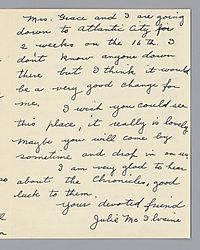 Mrs. Grace and I are going
down to Atlantic City for
2 weeks on the 16th. I
don't know anyone down
there but I think it would
be a very good change for
me,
I wish you could see
this place, it really is lovely
maybe you will come by
sometime and drop in on us
I am very glad to hear
about the Chronicles, good
luck to them.
Your devoted friend
Julie Mc Ilvaine